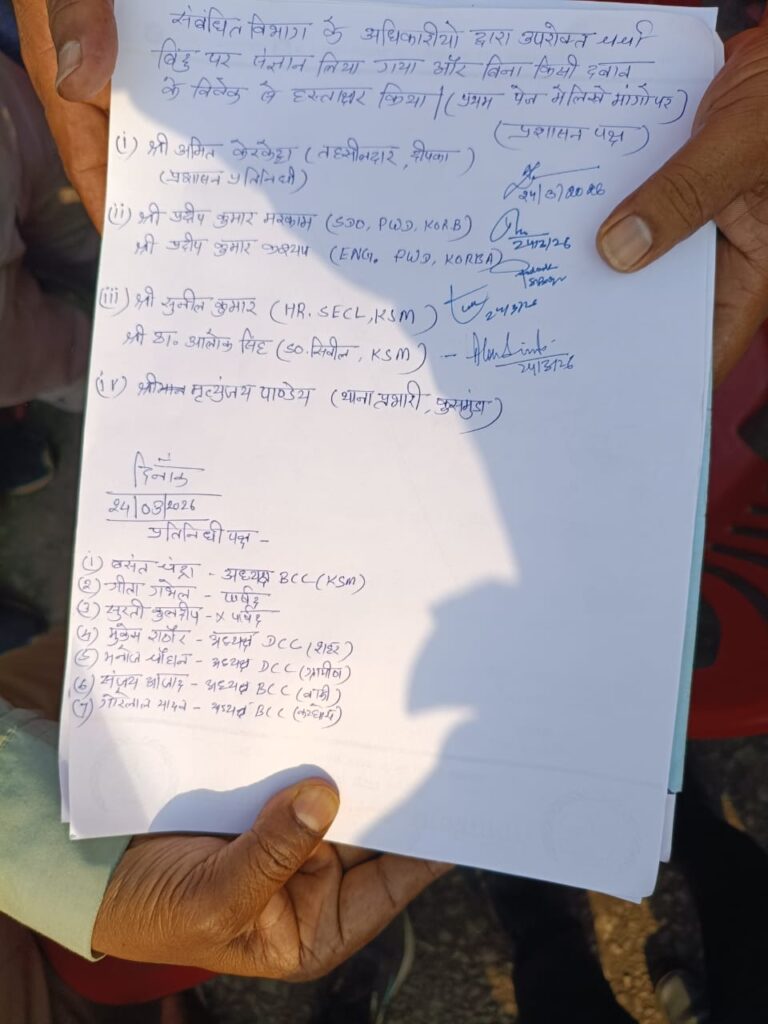 संबंधित विभाग के अधिकारीयो द्वारा उपरोक्त चर्चा
बिंदु पर संज्ञान लिया गया और बिना किसी दबाव
के विवेक से हस्ताक्षर किया। (प्रथम पेन मे लिखे मांगो पर)
(प्रशासन पक्ष)
(i) श्री अमित केरकेट्टा (तहसीलदार, दीपका)
(प्रशासन प्रतिनिधी)
24/3/2026
(ii) श्री प्रदीप कुमार मरकाम (SDO, PWD, KORB)
24/3/26
श्री प्रदीप कुमार कश्यप (ENG. PWD, KORBA)
(iii) श्री सुनील कुमार (HR. SECL, KSM)
24/3/26
श्री डा. आलोक सिंह (SO. सिवील, KSM) -
24/3/26
(iv) श्रीमान मृत्युंजय पाण्डेय (थाना प्रभारी, कुसमुंडा)
दिनाँक
24/03/2026
प्रतिनिधी पक्ष -
(1) बसंत चंद्रा - अध्यक्ष BCC (KSM)
(2) गीता गभेल - पार्षद
(3) सुरती कुलदीप - x पार्षद
(4) मुकेस राठौर - अध्यक्ष DCC (शहर)
(5) मनोज चौहान - अध्यक्ष DCC (ग्रामीण)
(6) संजय आजाद - अध्यक्ष BCC
(7) गोरेलाल यादव - अध्यक्ष BCC